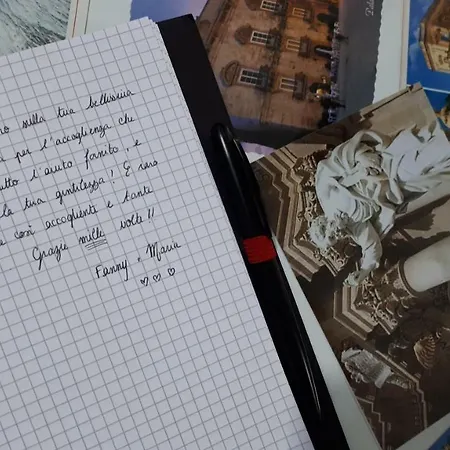 sulla tua bellissima
per l'accoglienza che
tutto l'aiuto fornito, e
la tua gentilezza! È raro
così accogliente e tante
Grazie mille volte!!
Fanny e Maria